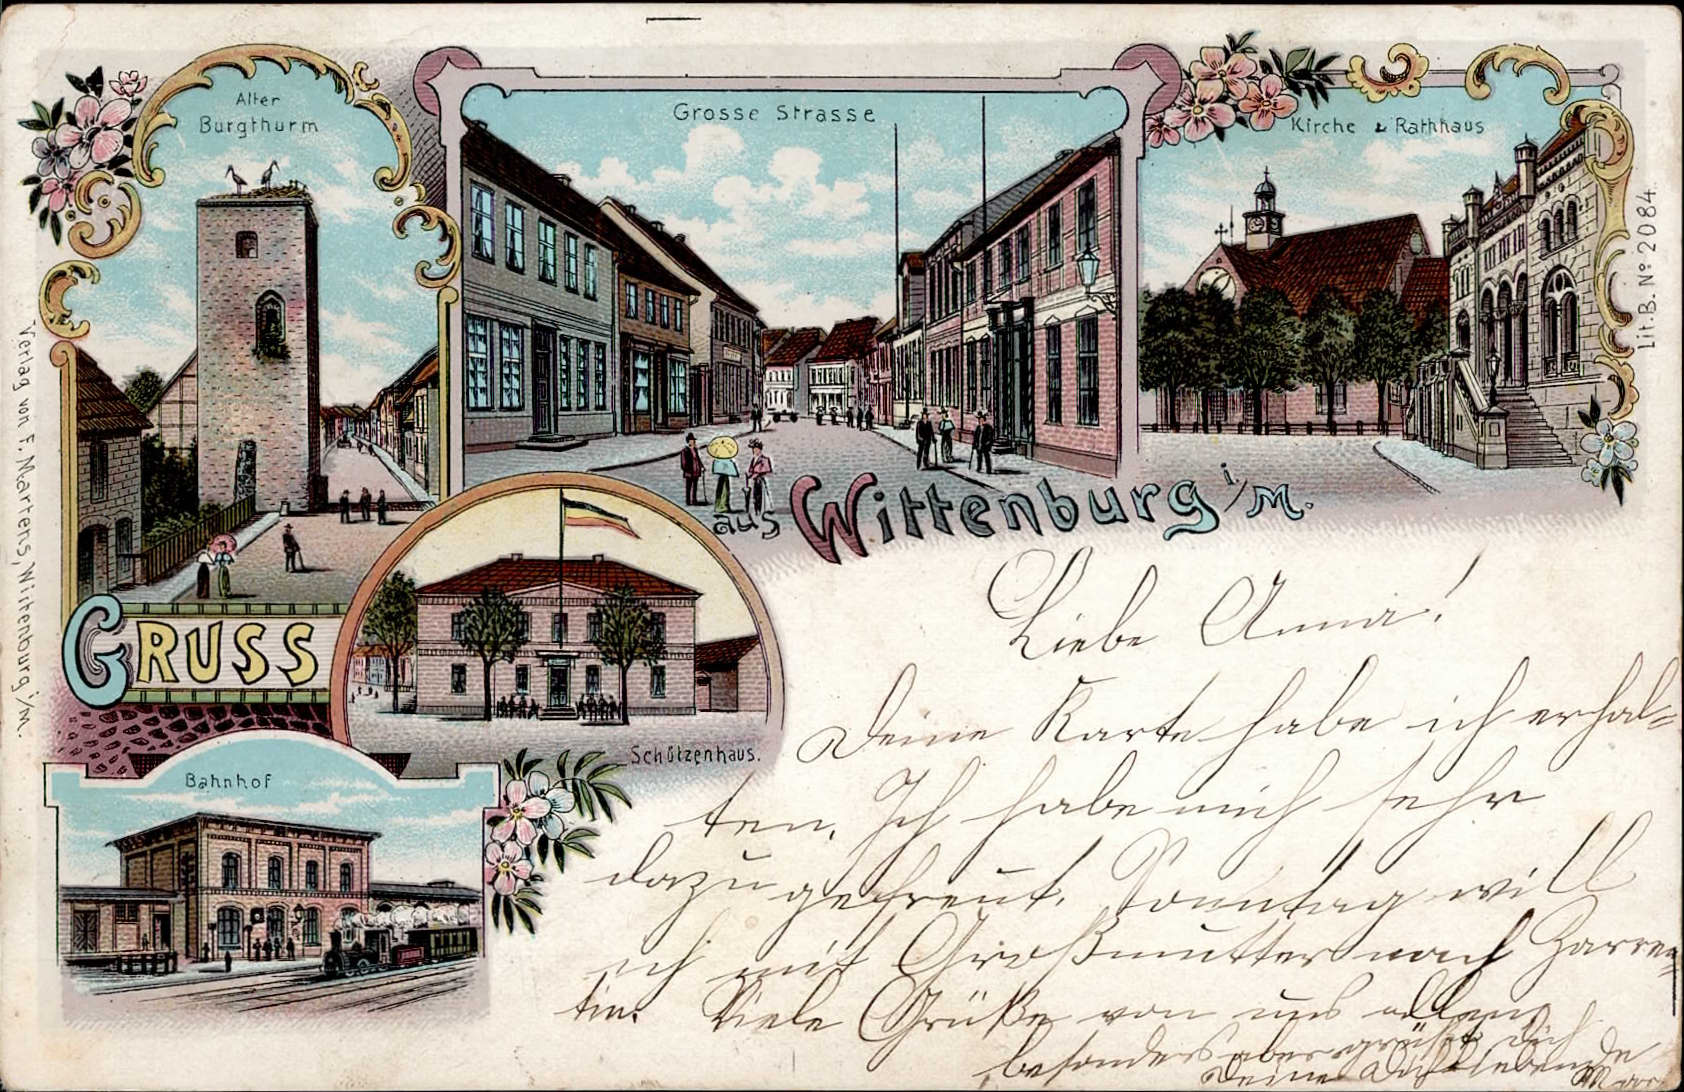 Alter
Burgthurm
Grosse Strasse
Kirche & Rathhaus
Lit. B. No 2084.
Verlag von F. Martens, Wittenburg i/M.
GRUSS
aus Wittenburg i/M.
Schützenhaus.
Bahnhof
Liebe Anna!
Deine Karte habe ich erhal-
ten. Ich habe mich sehr
dazu gefreut. Sonntag will
ich mit Großmutter nach Zarren-
tin. Viele Grüße von uns allen
besonders aber grüßt Dich
Deine Dich liebende